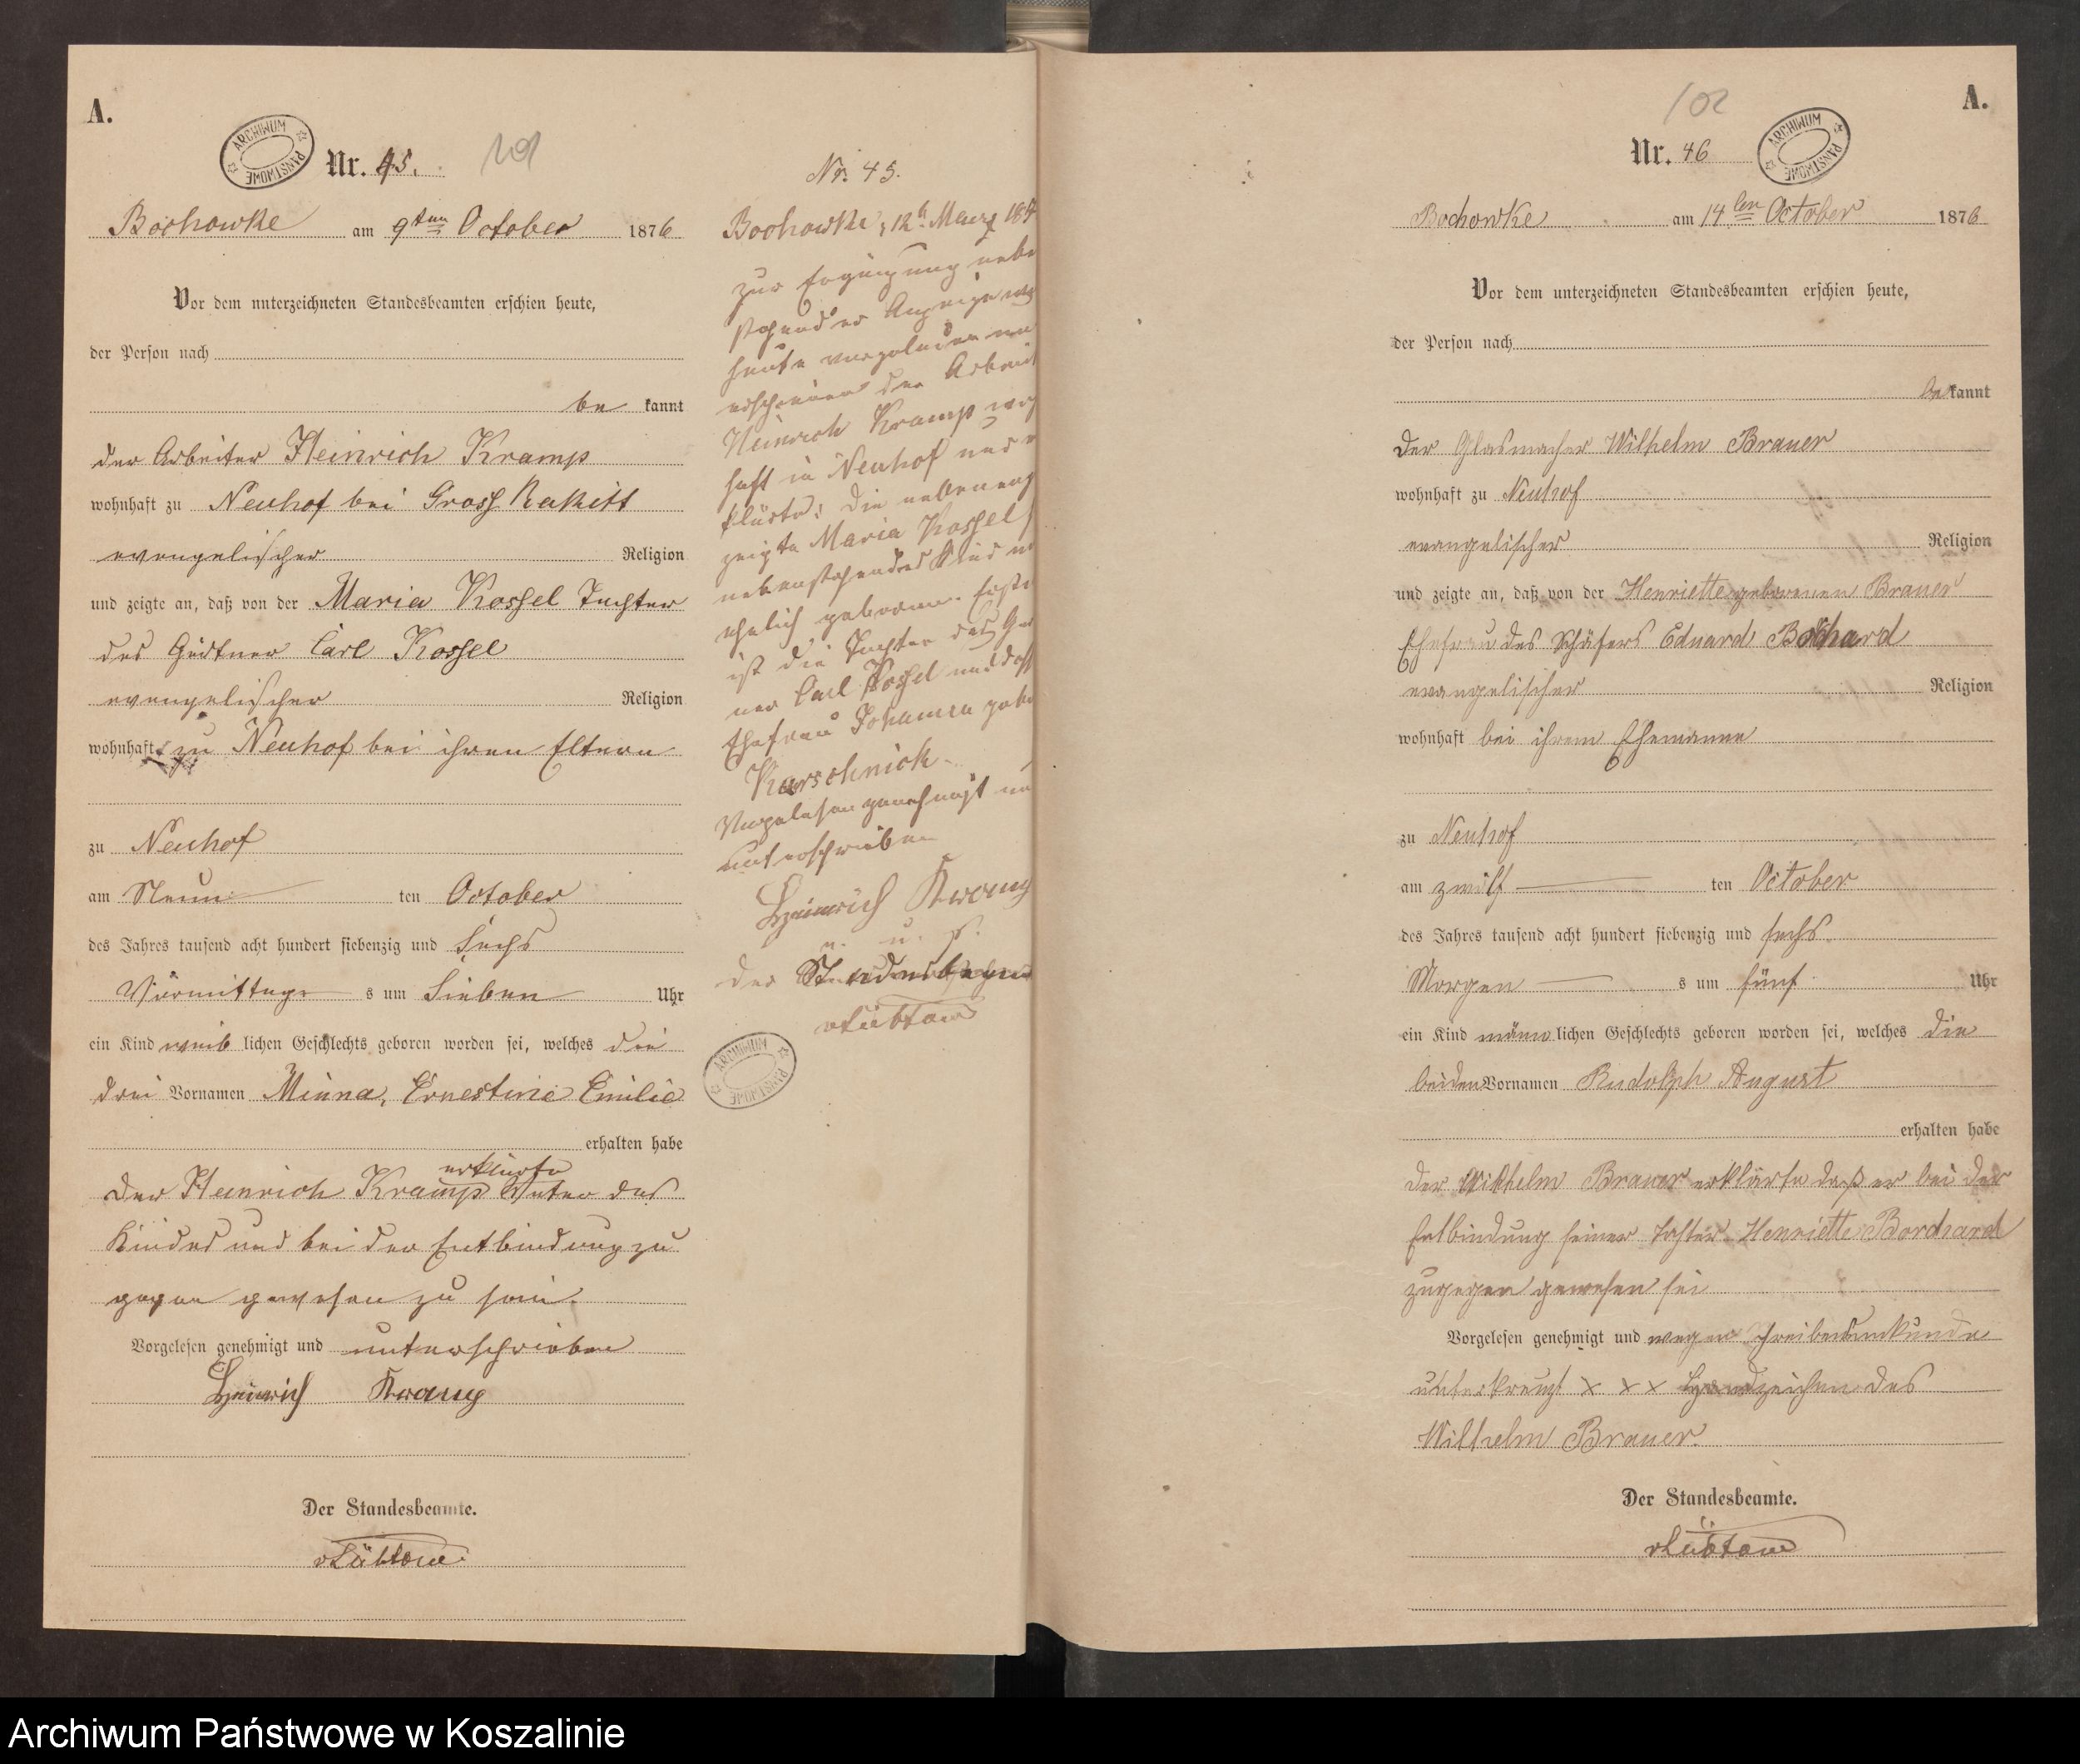 A.
ARCHIWUM PAŃSTWOWE
Nr. 45.
101
Bochowke am 9ten October 1876
Vor dem unterzeichneten Standesbeamten erschien heute,
der Person nach
be kannt
der Arbeiter Heinrich Kramp
wohnhaft zu Neuhof bei Gross Rakitt
evangelischer Religion
und zeigte an, daß von der Maria Kossel Tochter
des Gärtner Carl Kossel
evangelischer Religion
wohnhaft zu Neuhof bei ihren Eltern
zu Neuhof
am Neun ten October
des Jahres tausend acht hundert siebenzig und Sechs
Vormittags um Sieben Uhr
ein Kind weib lichen Geschlechts geboren worden sei, welches die
drei Vornamen Minna, Ernestine Emilie
erhalten habe
erklärte
Der Heinrich Kramp Vater des
Kindes und bei der Entbindung zu
gegen gewesen zu sein.
Vorgelesen genehmigt und unterschrieben
Heinrich Kramp
Der Standesbeamte.
vLübtow
Nr. 45.
Bochowke, 12t März 18
zur Ergänzung nebe
stehender Anzeige
heute vorgeladen
erschienen der Arbeit
Heinrich Kramp
haft in Neuhof und
klärte: Die nebenange
zeigte Maria Kossel
nebenstehendes Kind
ehelich geboren. Erste
ist die Tochter des Gärt
ner Carl Kossel und dess
Ehefrau Johanna gebo
Karschnick.
Vorgelesen genehmigt un
unterschrieben
Heinrich Kramp
Der Standesbeamte
vLübtow
ARCHIWUM PAŃSTWOWE
A.
102
Nr. 46
ARCHIWUM PAŃSTWOWE
Bochowke am 14ten October 1876
Vor dem unterzeichneten Standesbeamten erschien heute,
der Person nach
be kannt
der Glasmacher Wilhelm Brauer
wohnhaft zu Neuhof
evangelischer Religion
und zeigte an, daß von der Henriette geborenen Brauer
Ehefrau des Schäfers Eduard Borchard
evangelischer Religion
wohnhaft bei ihrem Ehemanne
zu Neuhof
am zwölf ten October
des Jahres tausend acht hundert siebenzig und sechs
Morgen s um fünf Uhr
ein Kind männlichen Geschlechts geboren worden sei, welches die
beiden Vornamen Rudolph August
erhalten habe
Der Wilhelm Brauer erklärte daß er bei der
Entbindung seiner Tochter Henriette Borchard
zugegen gewesen sei
Vorgelesen genehmigt und wegen Schreibensunkunde
unterkreuzt x x x Handzeichen des
Wilhelm Brauer.
Der Standesbeamte.
vLübtow
Archiwum Państwowe w Koszalinie